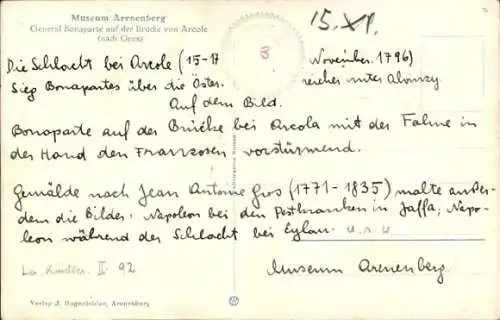 Museum Arenenberg
General Bonaparte auf der Brücke von Arcole
(nach Gros)
15. XI.
3
Die Schlacht bei Arcole (15-17 November. 1796)
Sieg Bonapartes über die Österreicher unter Alvinzy.
Auf dem Bild.
Bonaparte auf der Brücke bei Arcola mit der Fahne in
der Hand den Franzosen vorstürmend.
Gemälde nach Jean Antoine Gros (1771-1835) malte außer-
dem die Bilder: Napoleon bei den Pestkranken in Jaffa, Napo-
leon während der Schlacht bei Eylau. u.s.w
Museum Arenenberg.
II 92
Verlag J. Hugentobler, Arenenberg